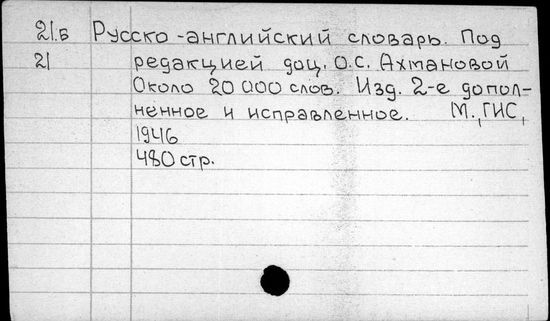 21.Б Русско-английский словарь. Под
21 редакцией доц. О.С. Ахмановой
Около 20 000 слов. Изд. 2-е допол-
ненное и исправленное. М., ГИС,
1946
480 стр.